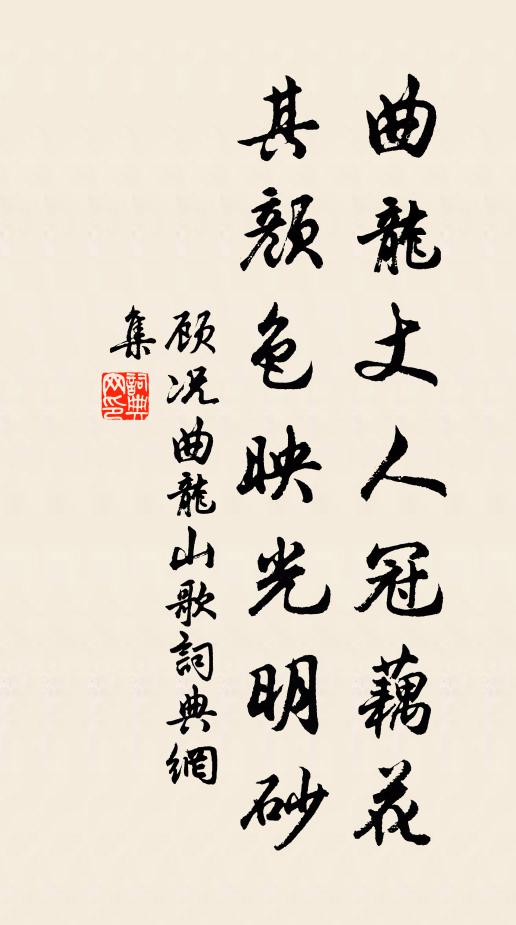 曲龍丈人冠藕花
其顏色映光明砂
顾况曲龍山歌詞典網
集
詞典
网印